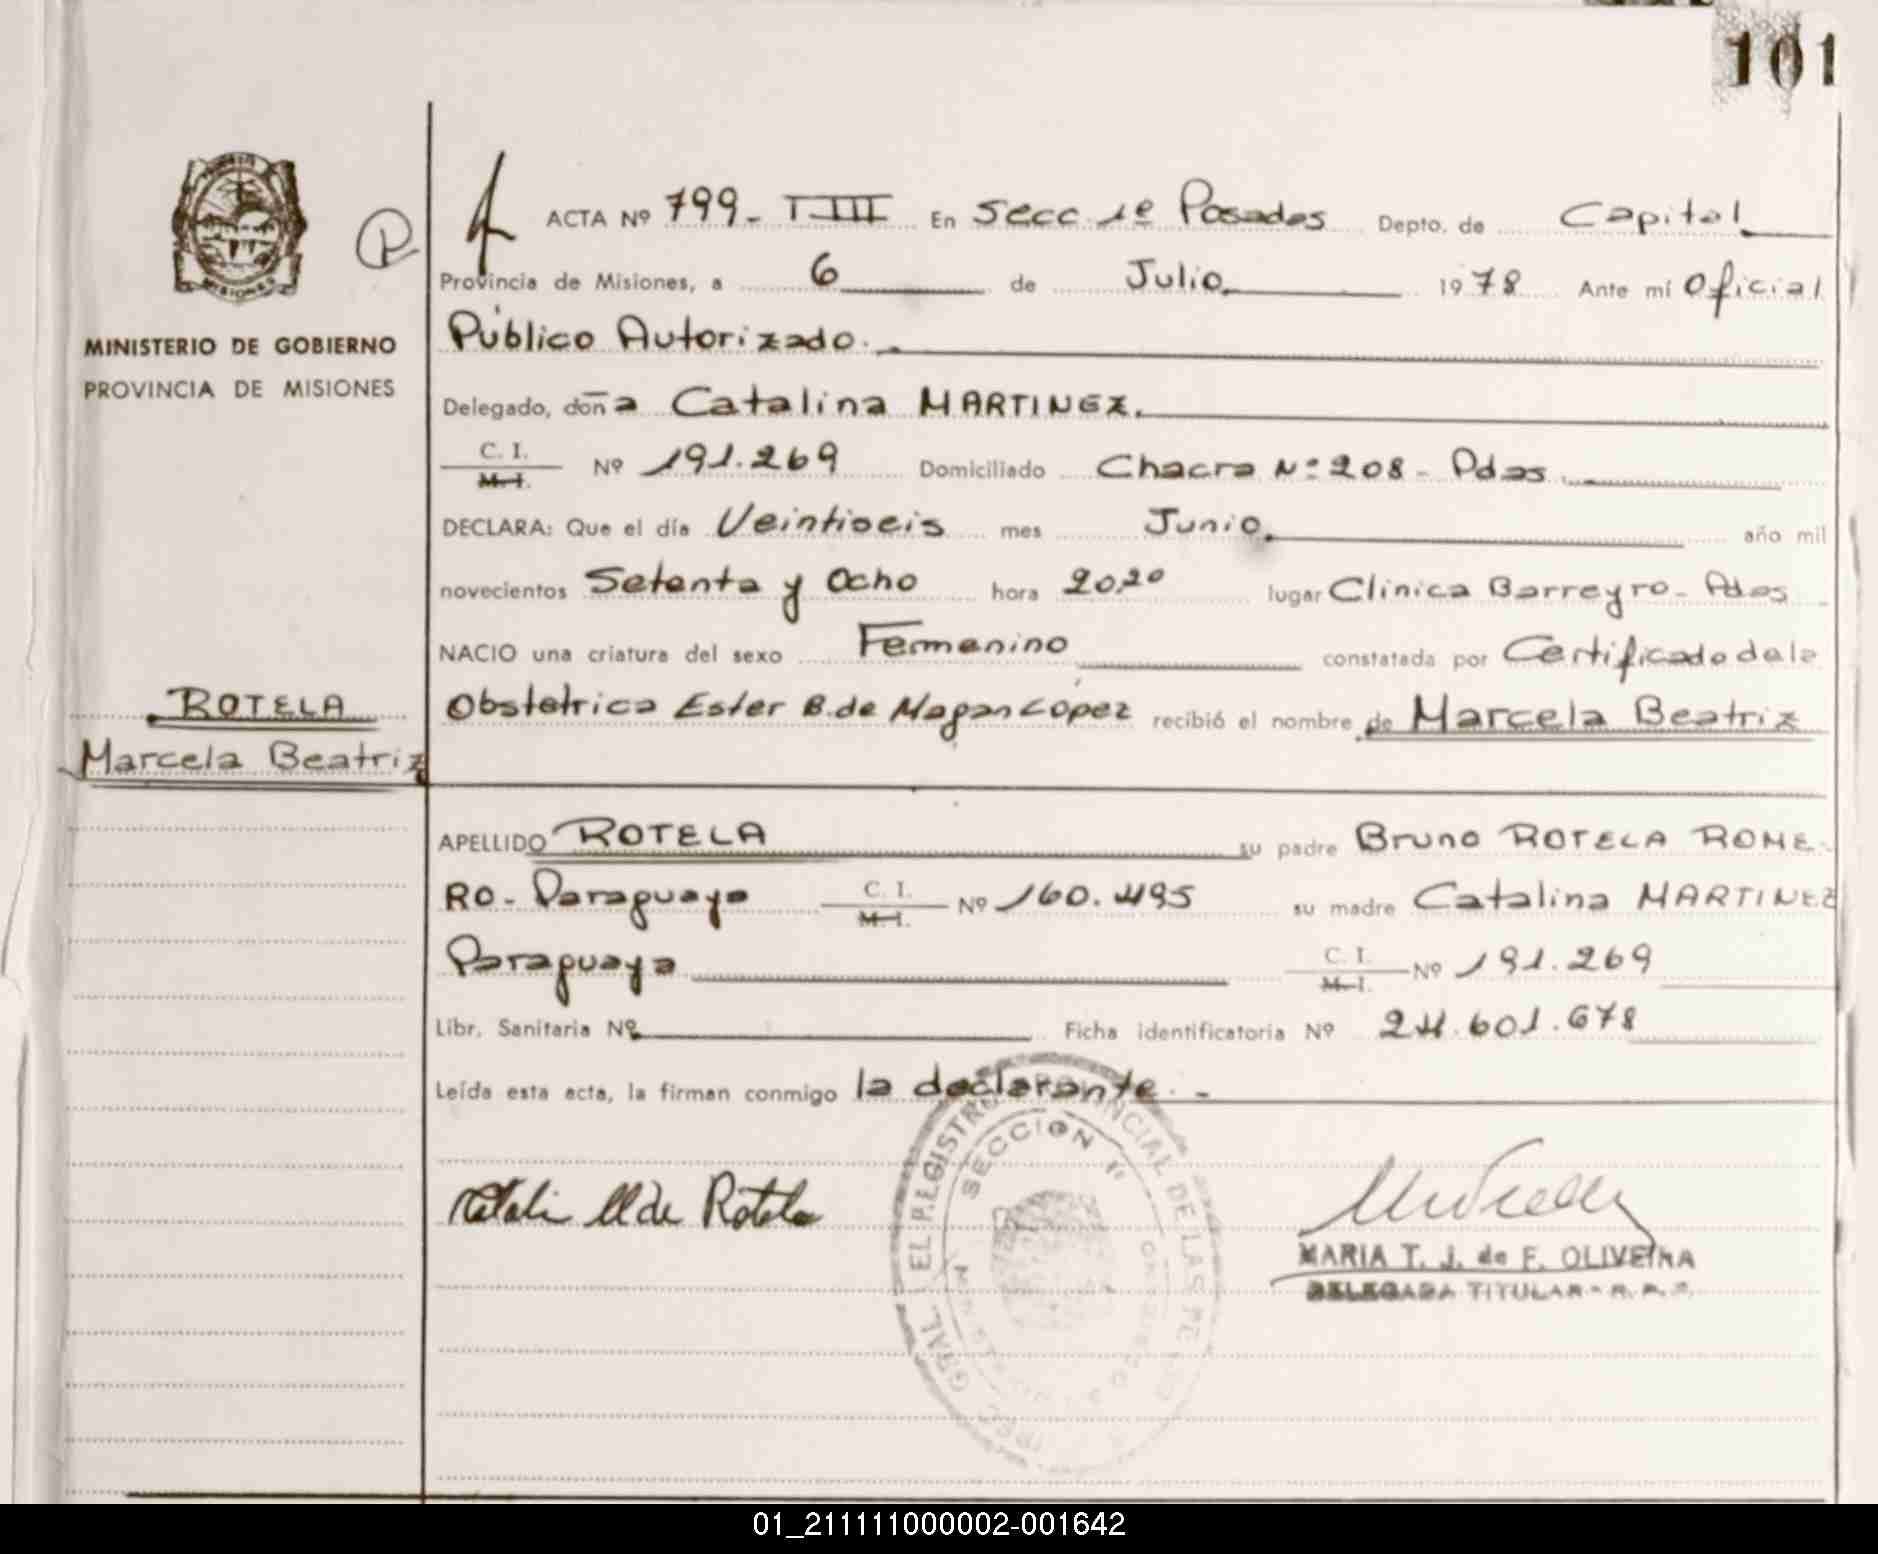 101
MINISTERIO DE GOBIERNO
PROVINCIA DE MISIONES
ROTELA
Marcela Beatriz
ACTA Nº 799- T III En Secc. 1º Posadas Depto. de Capital
Provincia de Misiones, a 6 de Julio 1978 Ante mí Oficial
Público Autorizado.-
Delegado, doña Catalina MARTINEZ.
C. I.
M. I. Nº 191.269 Domiciliado Chacra Nº 208 - Pdas
DECLARA: Que el día Veintiseis mes Junio año mil
novecientos Setenta y Ocho hora 20,20 lugar Clinica Barreyro - Pdas
NACIO una criatura del sexo Femenino constatada por Certificado de la
Obstetrica Ester B. de Magan Lopez recibió el nombre de Marcela Beatriz
APELLIDO ROTELA su padre Bruno ROTELA ROME-
RO - Paraguayo C. I.
M. I. Nº 160.495 su madre Catalina MARTINEZ
Paraguaya C. I.
M. I. Nº 191.269
Libr. Sanitaria Nº Ficha identificatoria Nº 24.601.678
Leída esta acta, la firman conmigo la declarante.-
SECCION
de Rotela
MARIA T. J. de F. OLIVEIRA
DELEGADA TITULAR - R. P. P.
01_211111000002-001642